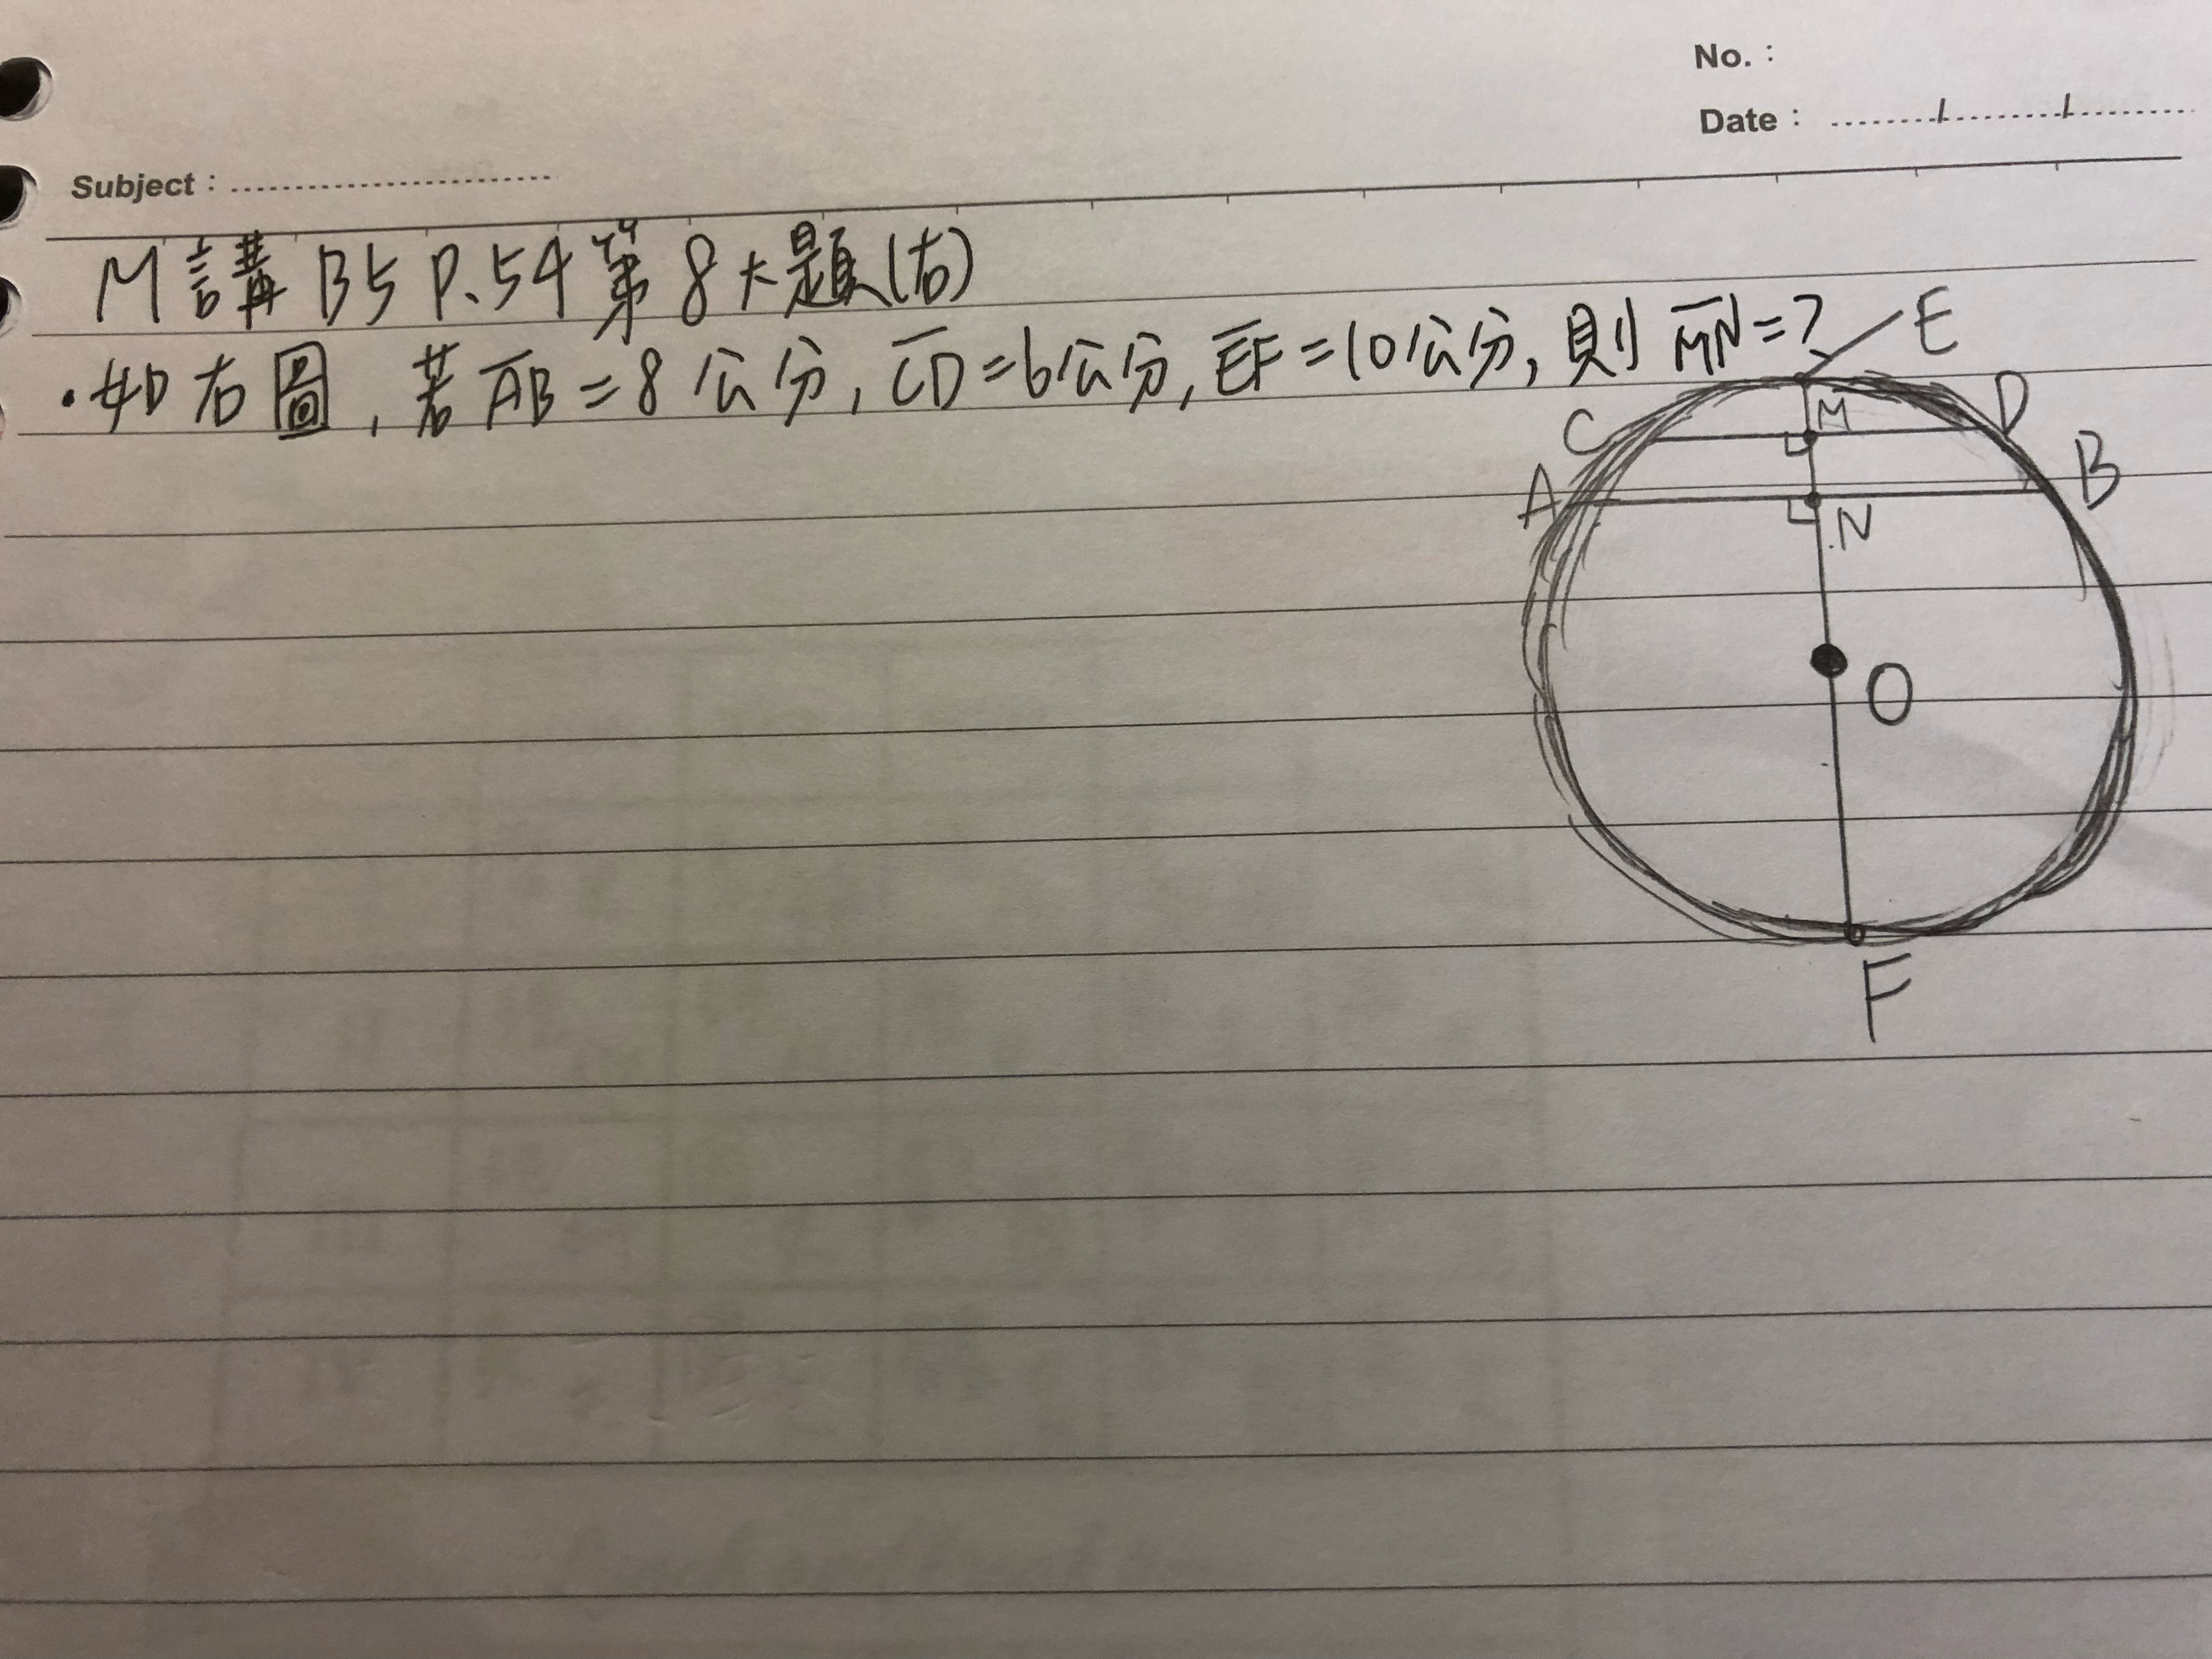 No.：
Date：
Subject：
M講 B5 P.54 第8大題(右)
・如右圖，若AB=8公分,CD=6公分,EF=10公分,則MN=?
E
C M D
A B
N
O
F